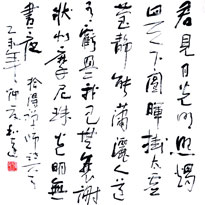 君見月光明照燭
四天下圓暉掛太虛
瑩静能蕭灑人道
有虧盈我見無衰謝
狀似摩尼珠光明無
晝夜 拾得禪師詩一首
乙未年